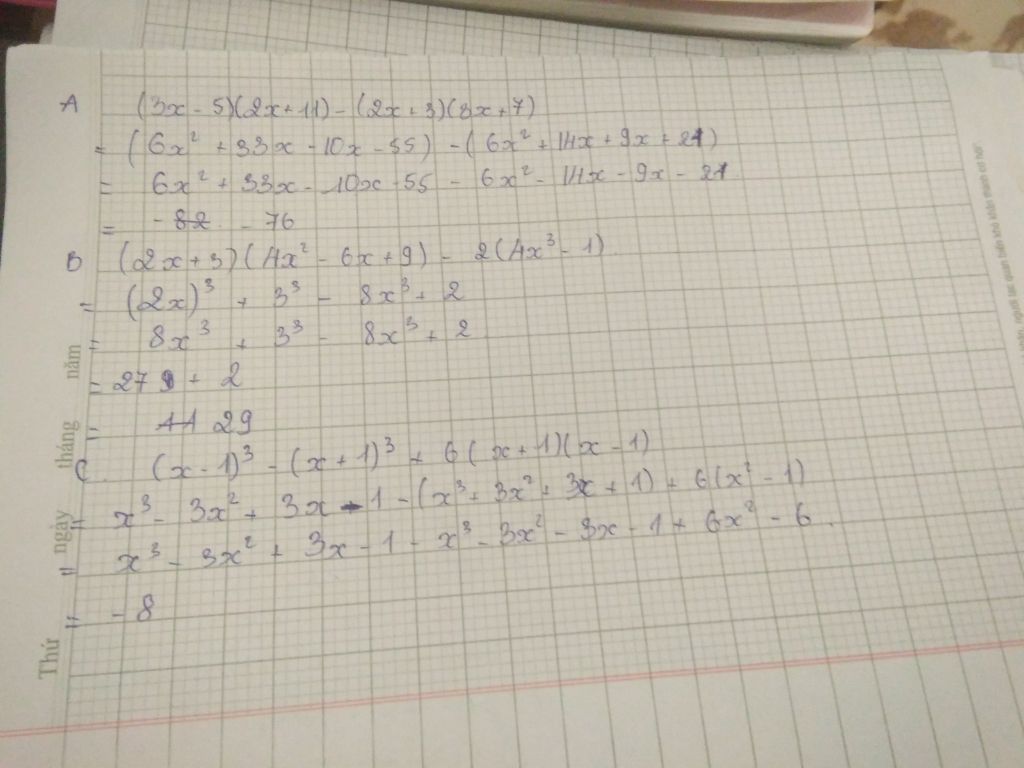 A (3x - 5)(2x + 11) - (2x + 3)(3x + 7)
= (6x² + 33x - 10x - 55) - (6x² + 14x + 9x + 21)
= 6x² + 33x - 10x - 55 - 6x² - 14x - 9x - 21.
= - 82 - 76
B (2x + 3)(4x² - 6x + 9) - 2(4x³ - 1).
= (2x)³ + 3³ - 8x³ + 2
= 8x³ + 3³ - 8x³ + 2
= 27 + 2
= 11 29
C. (x - 1)³ - (x + 1)³ + 6(x + 1)(x - 1)
= x³ - 3x² + 3x - 1 - (x³ + 3x² + 3x + 1) + 6(x² - 1)
= x³ - 3x² + 3x - 1 - x³ - 3x² - 3x - 1 + 6x² - 6.
= - 8
Thứ ngày tháng năm